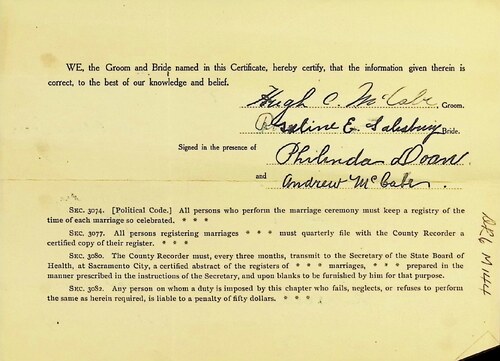 WE, the Groom and Bride named in this Certificate, hereby certify, that the information given therein is
correct, to the best of our knowledge and belief.
Hugh C. McCabe Groom.
Rosaline E. Salesbury Bride.
Signed in the presence of
Philinda Doan
and Andrew McCabe.
SEC. 3074. [Political Code.] All persons who perform the marriage ceremony must keep a registry of the
time of each marriage so celebrated. * * *
SEC. 3077. All persons registering marriages * * * must quarterly file with the County Recorder a
certified copy of their register. * * *
SEC. 3080. The County Recorder must, every three months, transmit to the Secretary of the State Board of
Health, at Sacramento City, a certified abstract of the registers of * * * marriages, * * * prepared in the
manner prescribed in the instructions of the Secretary, and upon blanks to be furnished by him for that purpose.
SEC. 3082. Any person on whom a duty is imposed by this chapter who fails, neglects, or refuses to perform
the same as herein required, is liable to a penalty of fifty dollars. * * * *